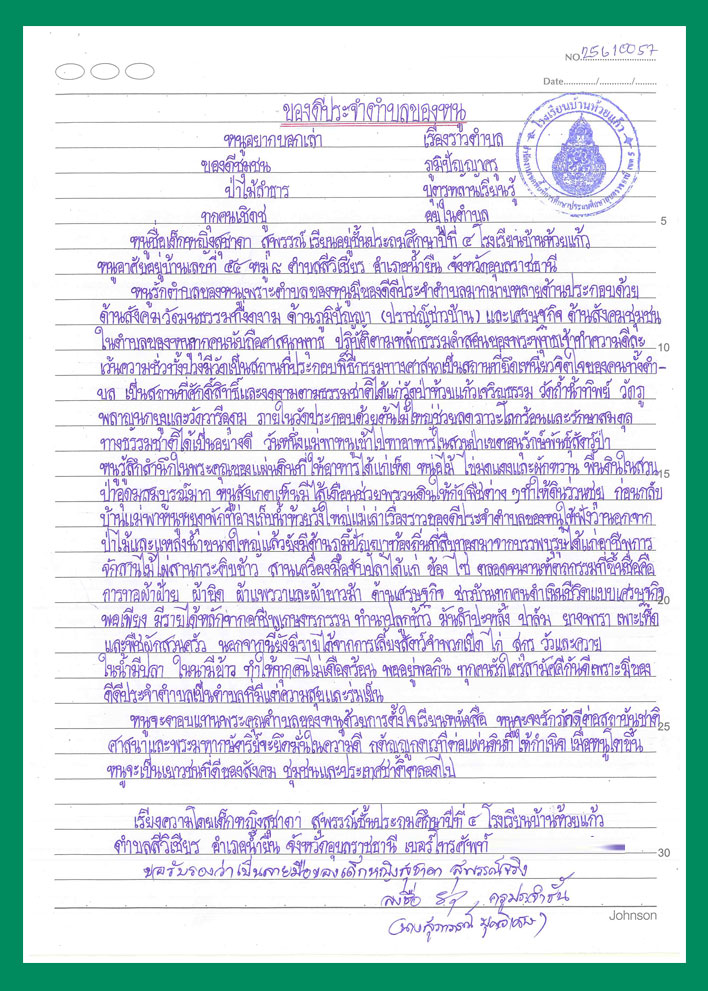 NO. 25610057
Date............/............/........
ของดีประจำตำบลของหนู
โรงเรียนบ้านห้วยแก้ว
หนูอยากบอกเล่า เรื่องราวตำบล
ของดีชุมชน ภูมิปัญญาครู
ป่าไม้ลำธาร บุตรหลานเรียนรู้
ทุกคนเชิดชู อยู่ในตำบล
5
หนูชื่อเด็กหญิงสุชาดา สุพรรณ์ เรียนอยู่ชั้นประถมศึกษาปีที่ ๔ โรงเรียนบ้านห้วยแก้ว
หนูอาศัยอยู่บ้านเลขที่ ๕๔ หมู่ ๙ ตำบลสีวิเชียร อำเภอน้ำยืน จังหวัดอุบลราชธานี
หนูรักตำบลของหนูเพราะตำบลของหนูมีของดีประจำตำบลมากมายหลายด้านประกอบด้วย
ด้านสังคมวัฒนธรรมที่งดงาม ด้านภูมิปัญญา (ปราชญ์ชาวบ้าน) และเศรษฐกิจ ด้านสังคมชุมชน
ในตำบลของหนูทุกคนนับถือศาสนาพุทธ ปฏิบัติตามหลักธรรมคำสอนของพระพุทธเจ้าทำความดีละ
10
เว้นความชั่วทั้งปวงมีวัดเป็นสถานที่ประกอบพิธีกรรมทางศาสนาเป็นสถานที่ยึดเหนี่ยวจิตใจของคนทั้งตำ-
บล เป็นสถานที่ศักดิ์สิทธิ์และงดงามตามธรรมชาติได้แก่วัดป่าห้วยแก้วเจริญธรรม วัดถ้ำน้ำทิพย์ วัดภู
พลาญนกยูงและวัดวารีอุดม ภายในวัดประกอบด้วยต้นไม้ใหญ่ช่วยลดภาวะโลกร้อนและรักษาสมดุล
ทางธรรมชาติได้เป็นอย่างดี วันหนึ่งแม่พาหนูเข้าไปหาอาหารในสวนป่าเขตอนุรักษ์พันธุ์สัตว์ป่า
หนูรู้สึกสำนึกในพระคุณของแผ่นดินที่ให้อาหารได้แก่เห็ด หน่อไม้ ไข่มดแดงและผักหวาน พื้นดินในสวน
15
ป่าอุดมสมบูรณ์มาก หนูสังเกตเห็นมีไส้เดือนช่วยพรวนดินให้กับพืชต่าง ๆทำให้ดินร่วนซุย ก่อนกลับ
บ้านแม่พาหนูหยุดพักที่อ่างเก็บน้ำห้วยวังใหญ่แม่เล่าเรื่องราวของดีประจำตำบลของหนูให้ฟังว่านอกจาก
ป่าไม้และแหล่งน้ำขนาดใหญ่แล้วยังมีด้านภูมิปัญญาท้องถิ่นที่สืบทอดมาจากบรรพบุรุษได้แก่อาชีพการ
จักสานไม้ไผ่สานกระติบข้าว สานเครื่องมือจับปลาได้แก่ ข้อง ไซ ตลอดจนงานหัตถกรรมที่ขึ้นชื่อคือ
การทอผ้าฝ้าย ผ้าขิด ผ้าแพรวาและผ้าขาวม้า ด้านเศรษฐกิจ ชาวบ้านทุกคนดำเนินชีวิตแบบเศรษฐกิจ
20
พอเพียง มีรายได้หลักจากอาชีพเกษตรกรรม ทำนาปลูกข้าว มันสำปะหลัง ปาล์ม ยางพารา เพาะเห็ด
และพืชผักสวนครัว นอกจากนี้ยังมีรายได้จากการเลี้ยงสัตว์จำพวกเป็ด ไก่ สุกร วัวและควาย
ในน้ำมีปลา ในนามีข้าว ทำให้ทุกคนไม่เดือดร้อน พออยู่พอกิน ทุกคนรักใคร่สามัคคีกันดีเพราะมีของ
ดีดีประจำตำบลเป็นตำบลที่มีแต่ความสุขและร่มเย็น
หนูจะตอบแทนพระคุณตำบลของหนูด้วยการตั้งใจเรียนหนังสือ หนูจะจงรักภักดีต่อสถาบันชาติ
25
ศาสนาและพระมหากษัตริย์จะยึดมั่นในความดี กตัญญูกตเวทีต่อแผ่นดินที่ให้กำเนิด เมื่อหนูโตขึ้น
หนูจะเป็นเยาวชนที่ดีของสังคม ชุมชนและประเทศชาติตลอดไป
เรียงความโดยเด็กหญิงสุชาดา สุพรรณ์ชั้นประถมศึกษาปีที่ ๔ โรงเรียนบ้านห้วยแก้ว
ตำบลสีวิเชียร อำเภอน้ำยืน จังหวัดอุบลราชธานี เบอร์โทรศัพท์
30
ขอรับรองว่าเป็นลายมือของเด็กหญิงสุชาดา สุพรรณ์จริง
ลงชื่อ ครูประจำชั้น
Johnson